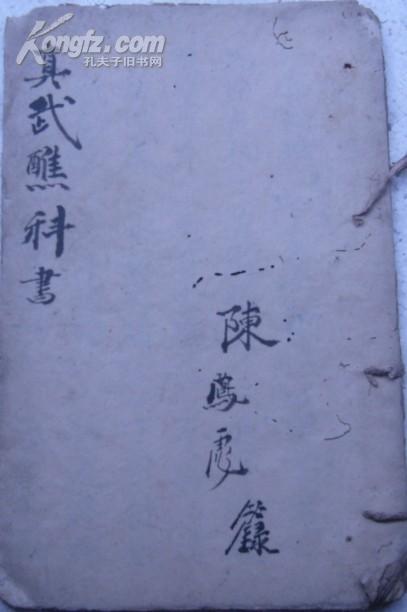 Kongfz.com
孔夫子旧书网
真武醮科書
陳
籙